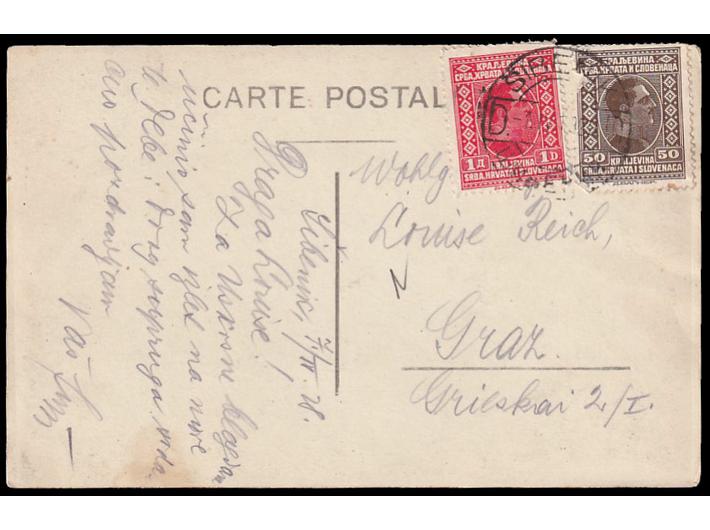 CARTE POSTALE
КРАЉЕВИНА
СРБА, ХРВАТА И СЛОВЕНАЦА
1 Д 1 D
KRALJEVINA
SRBA, HRVATA I SLOVENACA
КРАЉЕВИНА
СРБА, ХРВАТА И СЛОВЕНАЦА
50 50
KRALJEVINA
SRBA, HRVATA I SLOVENACA
Šibenik, 7/IV 28.
Draga Louise!
Za Uskrsne blagdane
učinio sam izlet na more
te Debe i
ovo pozdravljam
Vaš
Wohlg
Louise Reich,
Graz.
Grieskai 2/I.